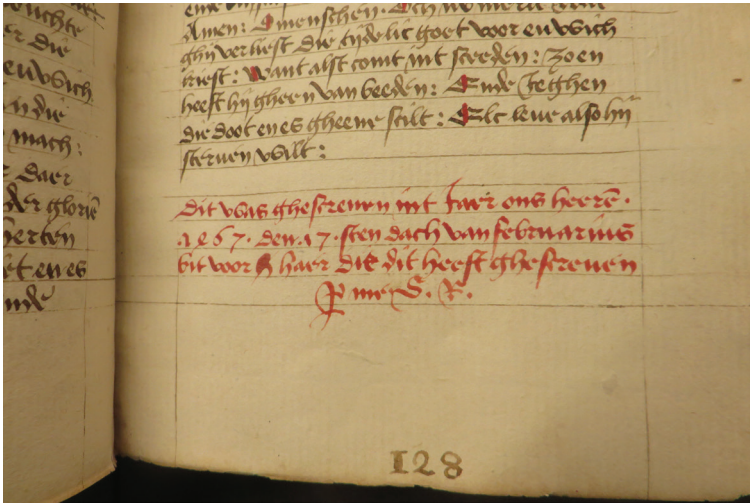 uchte
er die
en v sich
n die
mach:
daer
der glorie
herten
et en es
ende
Amen: O menschen
ghy verliest die tijdelic goet voor en v sich
kiest: Want alst comt int sceeden: Zoen
heeft hij gheen van beeden: Ende Jeghen
die doot en es gheene scilt: Elc leue also hij
steruen wilt:
Dit was ghescreuen int Jaer ons heerē.
den 17. sten dach van februarius
bit voor haer die dit heeft ghescreuen
P me S. R.
128